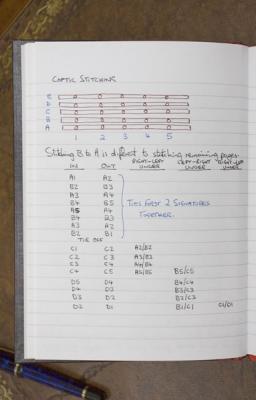 COPTIC STITCHING
E
D
C
B
A
1 2 3 4 5
Stitching B to A is different to stitching remaining pages.
IN OUT RIGHT-LEFT UNDER LEFT-RIGHT UNDER RIGHT-LEFT UNDER
A1 A2
B2 B3
A3 A4
B4 B5
A5 A4
B4 B3
A3 A2
B2 B1
TIES FIRST 2 SIGNATURES
TOGETHER.
TIE OFF
C1 C2 A2/B2
C2 C3 A3/B3
C3 C4 A4/B4
C4 C5 A5/B5 B5/C5
D5 D4 B4/C4
D4 D3 B3/C3
D3 D2 B2/C2
D2 D1 B1/C1 C1/D1